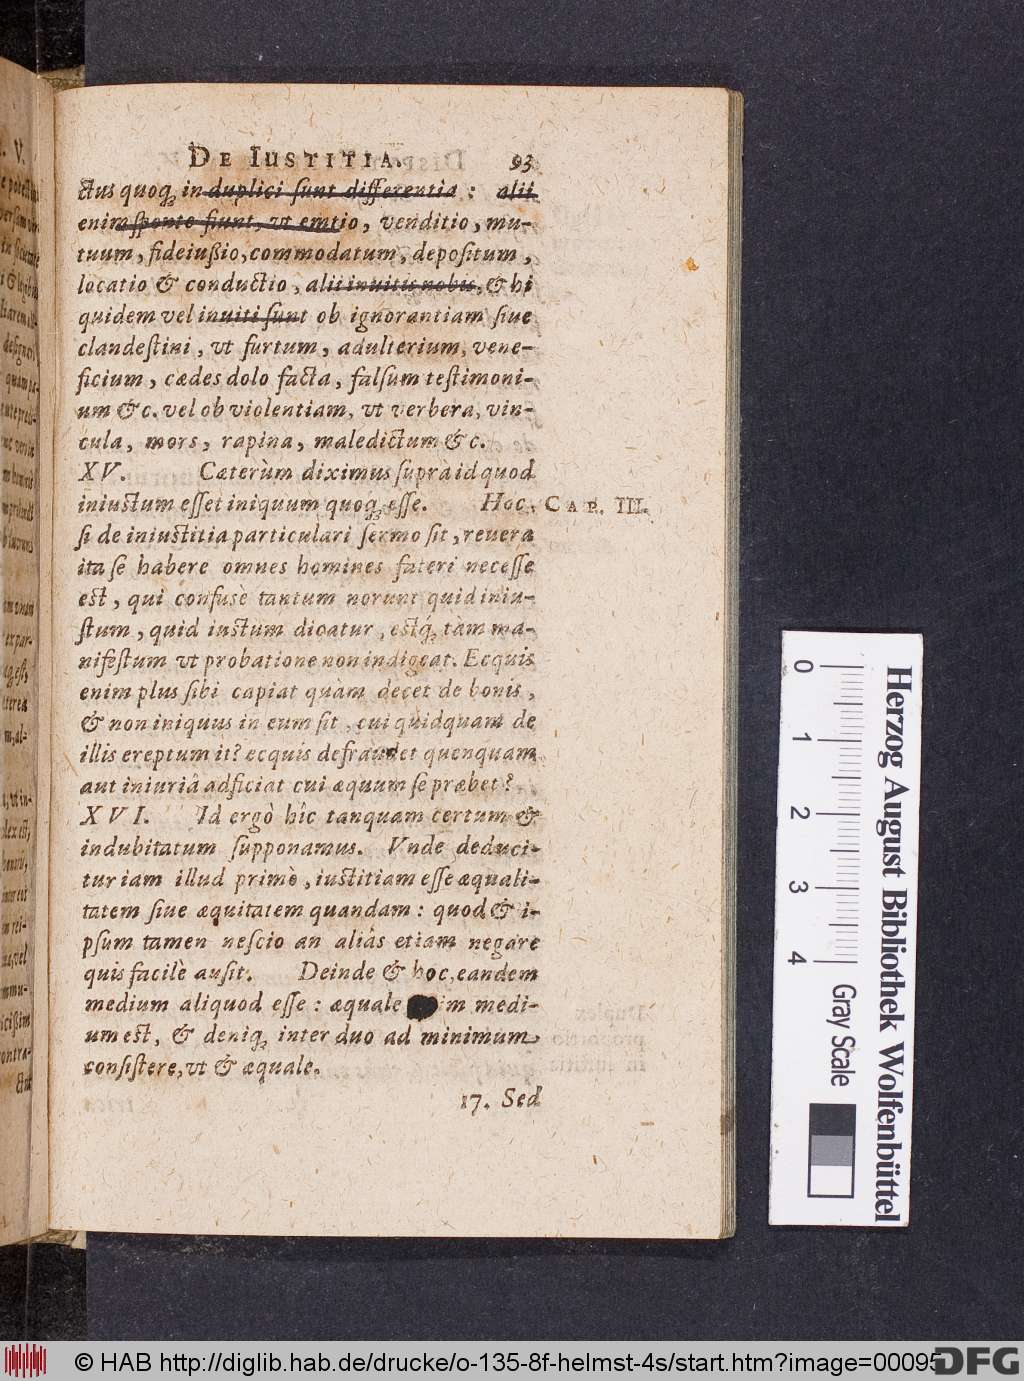 DE IUSTITIA. 93
ctus quoq; in duplici sunt differentia : alii
enim sponte fiunt, vt emtio, venditio, mu-
tuum, fideiußio, commodatum, depositum,
locatio & conductio, alii inuitis nobis, & hi
quidem vel inuiti sunt ob ignorantiam siue
clandestini, vt furtum, adulterium, vene-
ficium, cædes dolo facta, falsum testimoni-
um &c. vel ob violentiam, vt verbera, vin-
cula, mors, rapina, maledictum &c.
XV. Cæterùm diximus suprà id quod
iniustum esset iniquum quoq; esse. Hoc, CAP. III.
si de iniustitia particulari sermo sit, reuera
ita se habere omnes homines fateri necesse
est, qui confusè tantum norunt quid iniu-
stum, quid iustum dicatur, estq; tàm ma-
nifestum vt probatione non indigeat. Ecquis
enim plus sibi capiat quàm decet de bonis,
& non iniquus in eum sit, cui quidquam de
illis ereptum it? ecquis defraudet quenquam
aut iniuriâ adficiat cui æquum se præbet?
XVI. Id ergò hîc tanquam certum &
indubitatum supponamus. Vnde deduci-
tur iam illud primò, iustitiam esse æquali-
tatem siue æquitatem quandam : quod & i-
psum tamen nescio an aliàs etiam negare
quis facilè ausit. Deinde & hoc, eandem
medium aliquod esse : æquale im medi-
um est, & deniq; inter duo ad minimum
consistere, vt & æquale.
17. Sed
0 1 2 3 4
Gray Scale
Herzog August Bibliothek Wolfenbüttel
© HAB http://diglib.hab.de/drucke/o-135-8f-helmst-4s/start.htm?image=00095
DFG